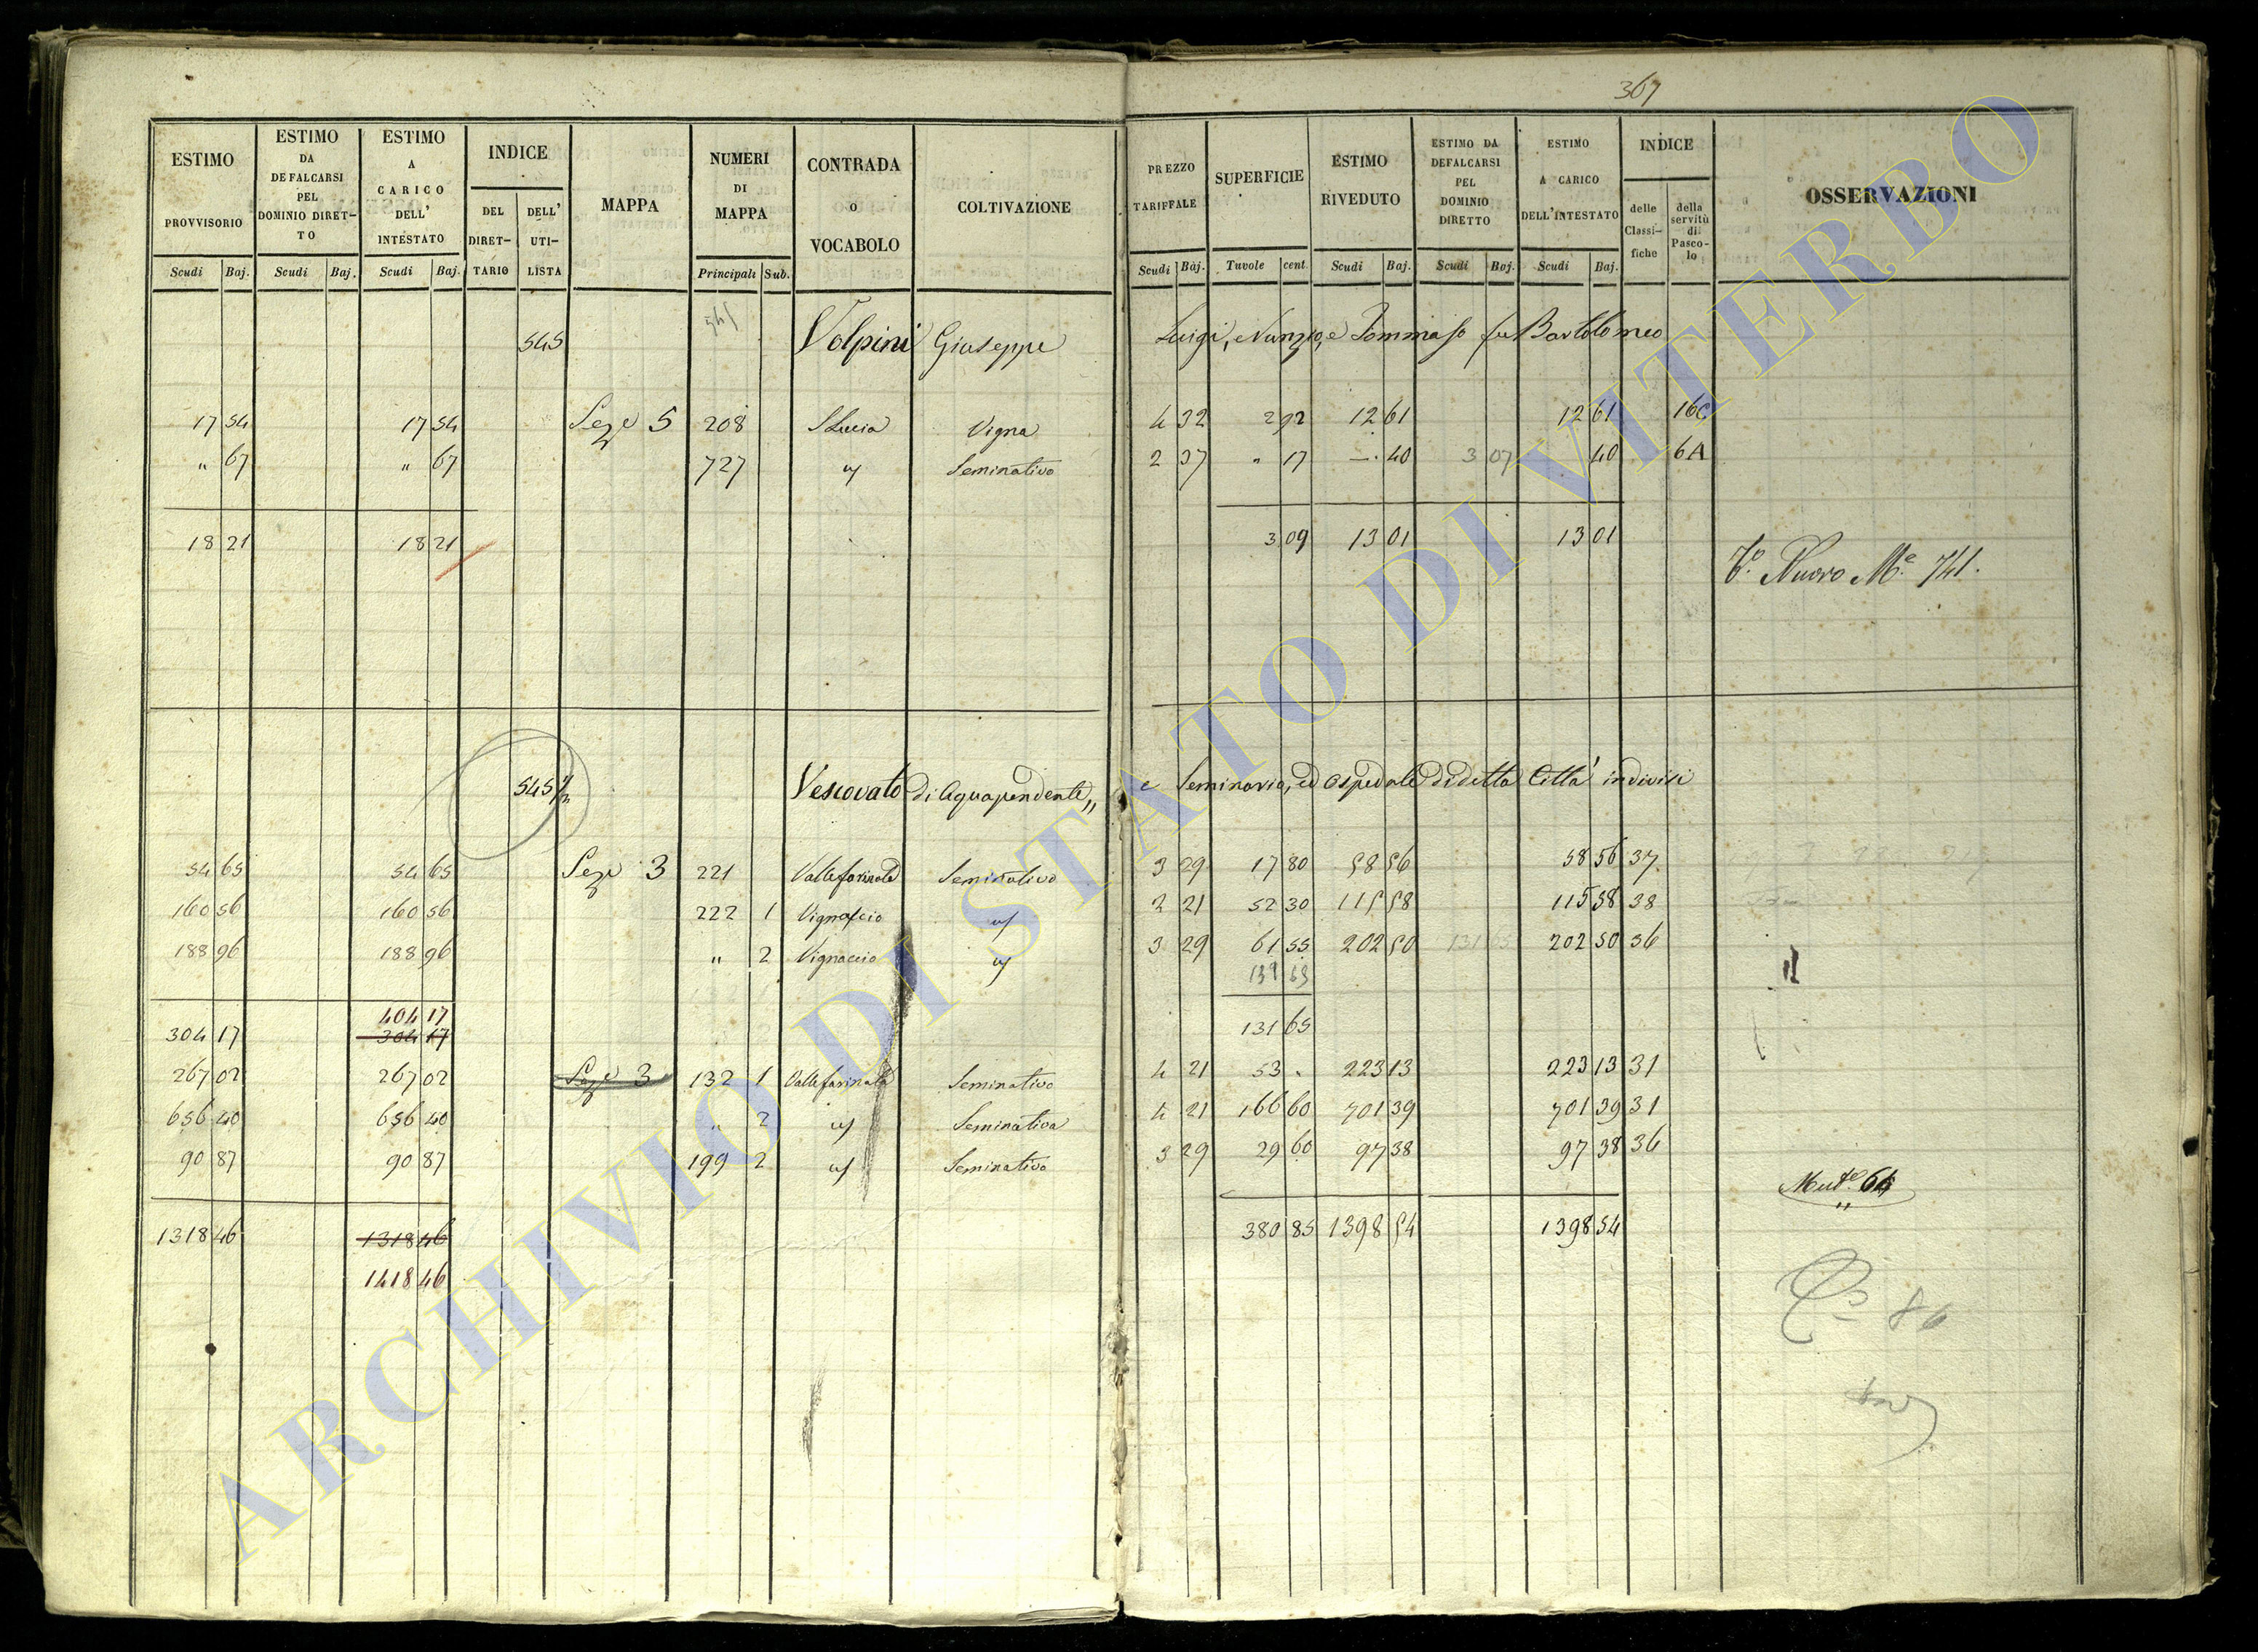 367
ESTIMO PROVVISORIO Scudi Baj.
ESTIMO DA DEFALCARSI PEL DOMINIO DIRETTO Scudi Baj.
ESTIMO A CARICO DELL' INTESTATO Scudi Baj.
INDICE DEL DIRETTARIO DELL' UTILISTA
MAPPA
NUMERI DI MAPPA Principali Sub.
CONTRADA o VOCABOLO
COLTIVAZIONE
PREZZO TARIFFALE Scudi Baj.
SUPERFICIE Tavole cent.
ESTIMO RIVEDUTO Scudi Baj.
ESTIMO DA DEFALCARSI PEL DOMINIO DIRETTO Scudi Baj.
ESTIMO A CARICO DELL'INTESTATO Scudi Baj.
INDICE delle Classifiche della servitù di Pascolo
OSSERVAZIONI
545
545 Volpini Giuseppe Luigi, Nunzio, e Tommaso fu Bartolomeo
17 54 17 54 Seze 5 208 S Lucia Vigna 4 32 2 92 12 61 12 61 16C
" 67 " 67 727 Seminativo 2 37 " 17 — 40 3 07 40 6A
18 21 18 21 3 09 13 01 13 01
Nuovo Me 741.
545 1/2 Vescovato di Aquapendente,, e Seminario, ed Ospedale di detta Città indivisi
54 65 54 65 Seze 3 221 Vallefarinata Seminativo 3 29 17 80 58 56 58 56 37
160 56 160 56 222 1 Vignaccio 2 21 52 30 115 58 115 58 38
188 96 188 96 " 2 Vignaccio 3 29 61 55 202 50 131 65 202 50 36
404 17
304 17 304 17 131 65
267 02 267 02 Seze 3 132 1 Vallefarinata Seminativo 4 21 53 . 223 13 223 13 31
656 40 656 40 " 2 Seminativa 4 21 166 60 701 39 701 39 31
90 87 90 87 199 2 Seminativo 3 29 29 60 97 38 97 38 36
1318 46 1318 46 380 85 1398 54 1398 54
1418 46
86
ARCHIVIO DI STATO DI VITERBO